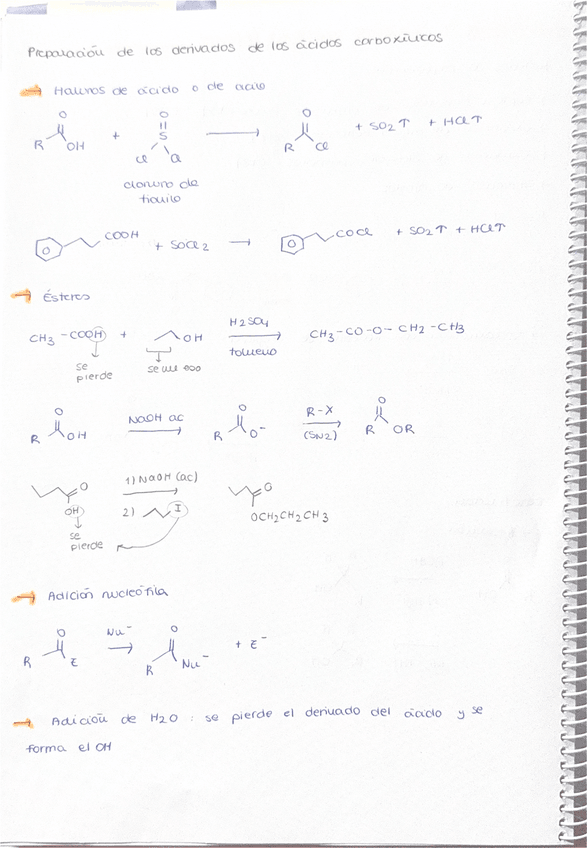 Preparación de los derivados de los ácidos carboxílicos
→ Haluros de ácido o de acilo
R O OH + O S Cl Cl → R O Cl + SO2↑ + HCl↑
cloruro de
tionilo
COOH + SOCl2 → COCl + SO2↑ + HCl↑
→ Ésteres
CH3-COOH + OH H2SO4 tolueno CH3-CO-O-CH2-CH3
se
pierde
R O OH NaOH ac → R O O- R-X (SN2) → R O OR
O OH 1) NaOH (ac) 2) I O OCH2CH2CH3
se
pierde
→ Adición nucleófila
R O E Nu- → R O Nu- + E-
→ Adición de H2O : se pierde el derivado del ácido y se
forma el OH